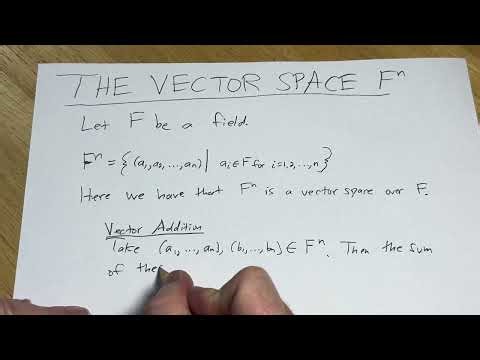 THE VECTOR SPACE Fⁿ
Let F be a field.
Fⁿ = {(a₁, a₂, ..., aₙ) | aᵢ ∈ F for i=1,2,...,n}
Here we have that Fⁿ is a vector space over F.
Vector Addition
Take (a₁, ..., aₙ), (b₁, ..., bₙ) ∈ Fⁿ. Then the sum
of the